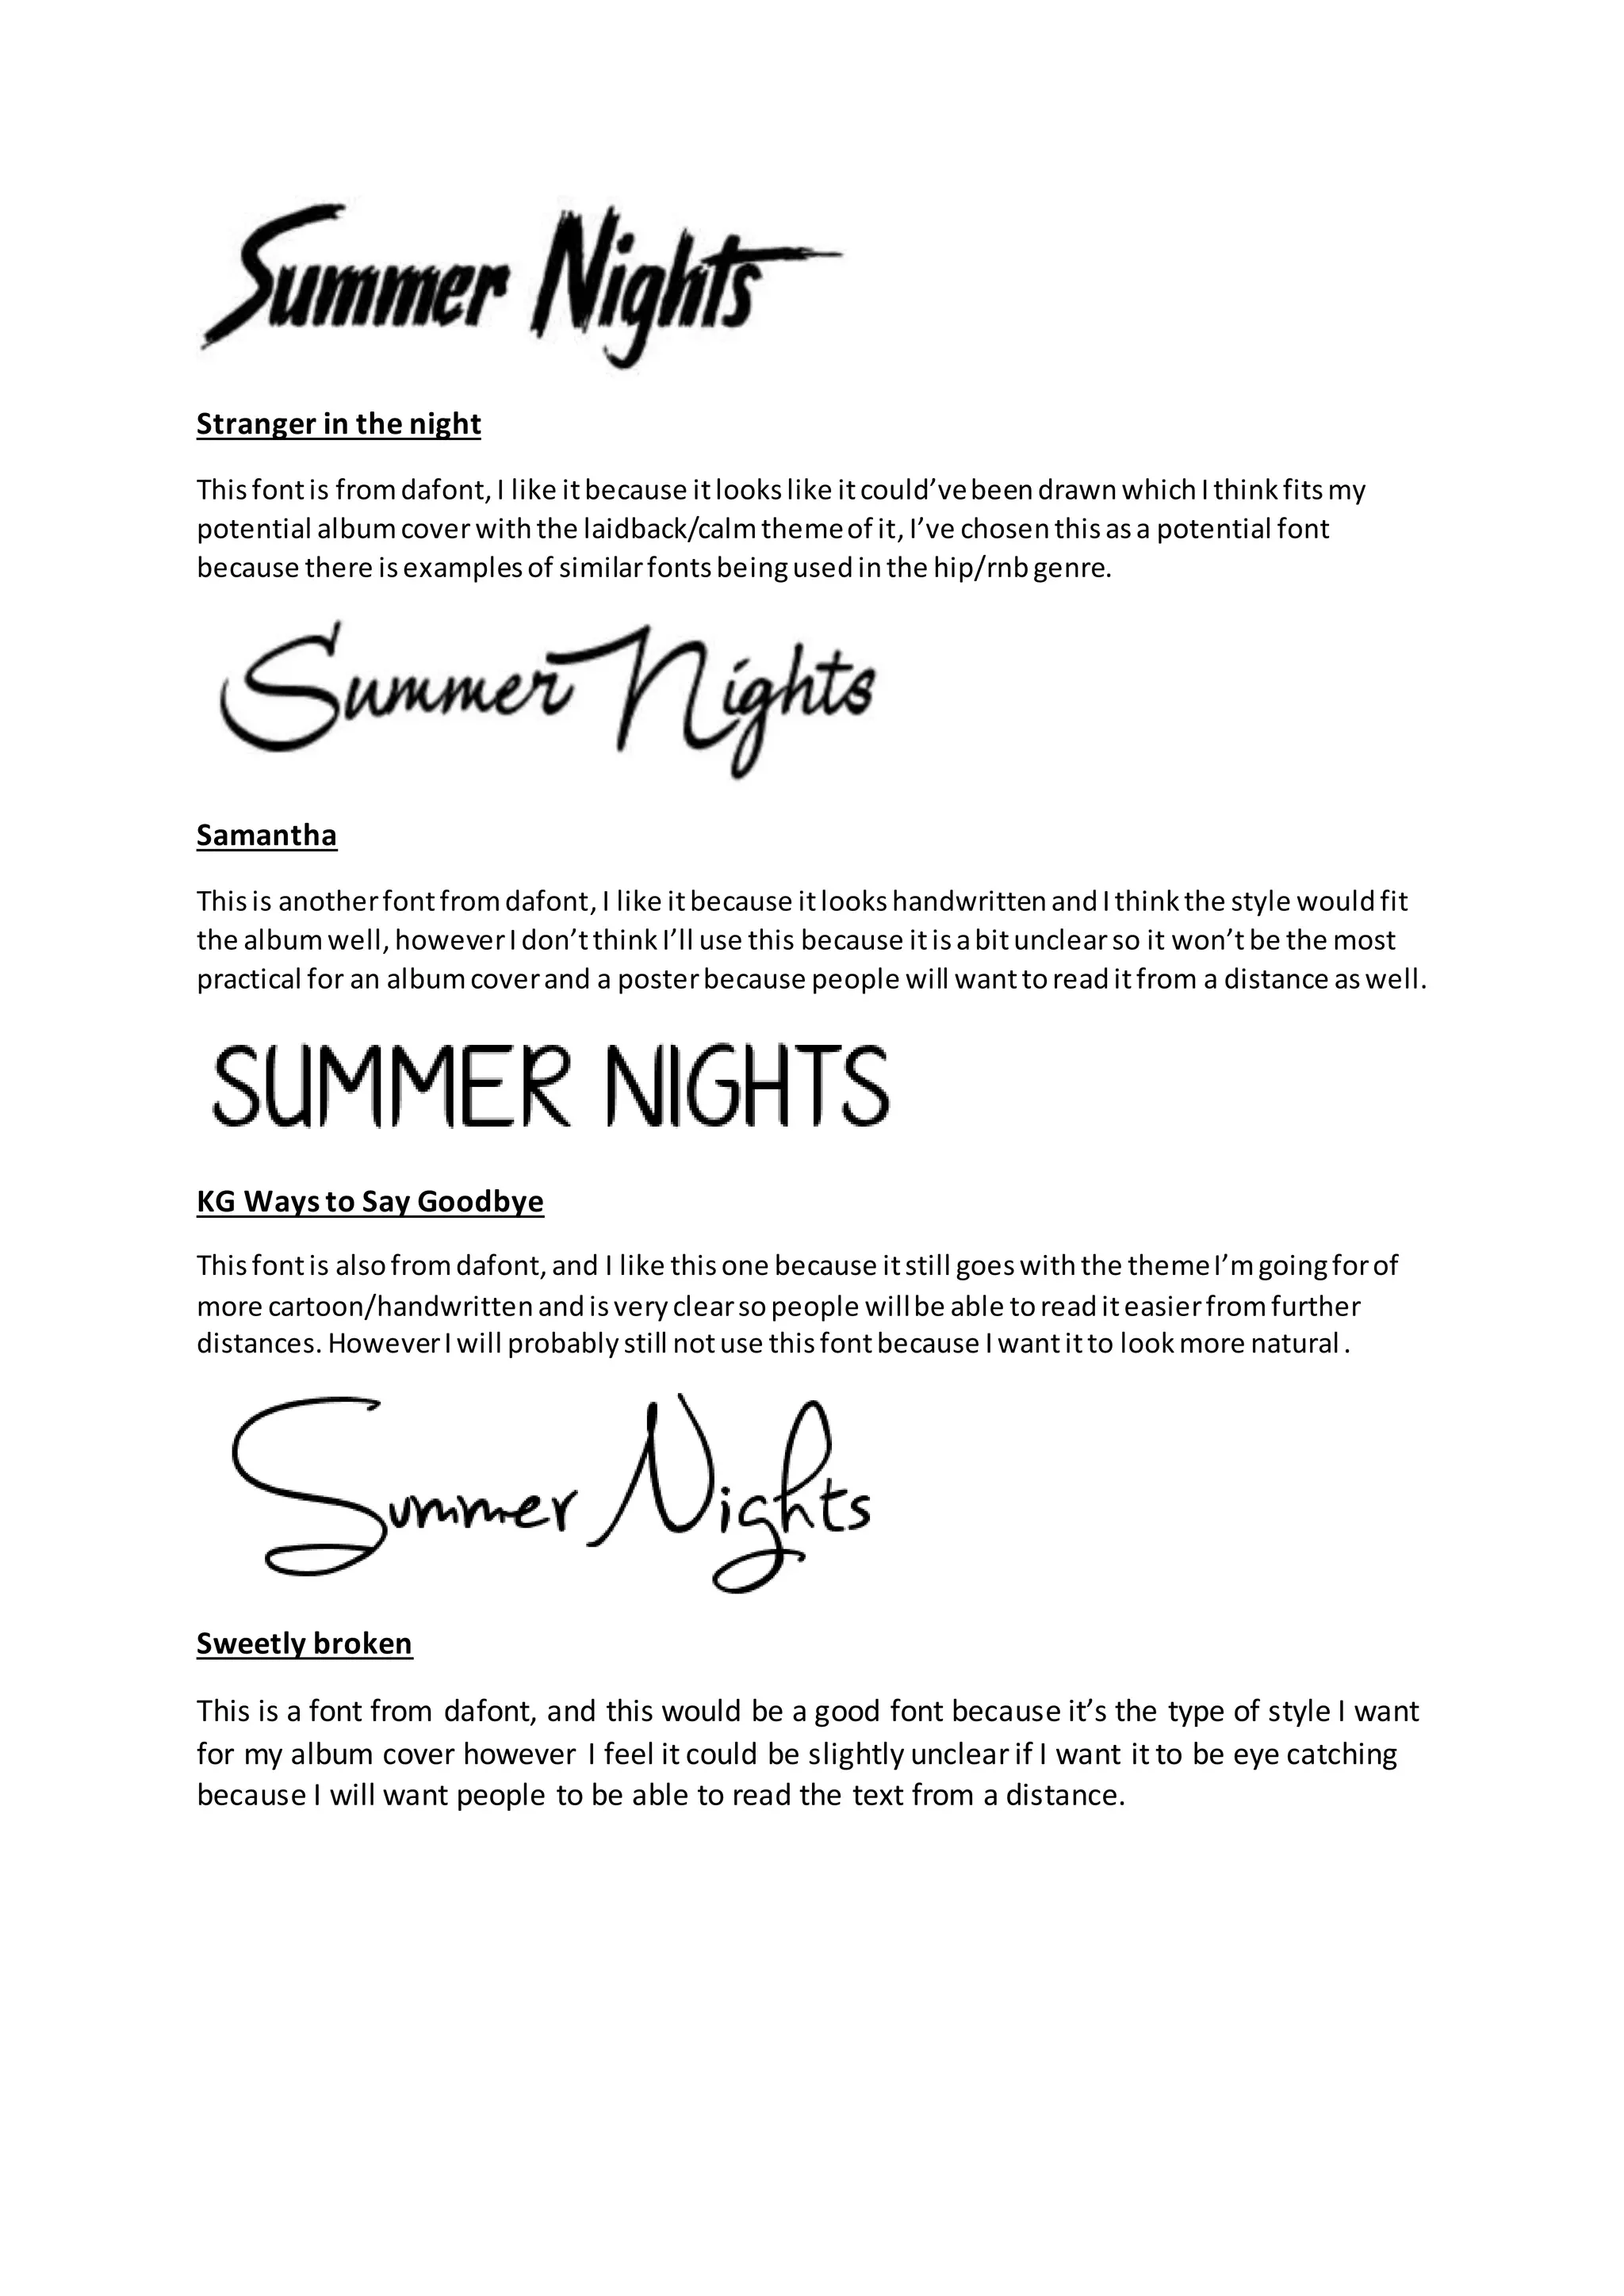 Summer Nights
Stranger in the night
This font is from dafont, I like it because it looks like it could’ve been drawn which I think fits my
potential album cover with the laidback/calm theme of it, I’ve chosen this as a potential font
because there is examples of similar fonts being used in the hip/rnb genre.
Summer Nights
Samantha
This is another font from dafont, I like it because it looks handwritten and I think the style would fit
the album well, however I don’t think I’ll use this because it is a bit unclear so it won’t be the most
practical for an album cover and a poster because people will want to read it from a distance as well.
SUMMER NIGHTS
KG Ways to Say Goodbye
This font is also from dafont, and I like this one because it still goes with the theme I’m going for of
more cartoon/handwritten and is very clear so people will be able to read it easier from further
distances. However I will probably still not use this font because I want it to look more natural.
Summer Nights
Sweetly broken
This is a font from dafont, and this would be a good font because it’s the type of style I want
for my album cover however I feel it could be slightly unclear if I want it to be eye catching
because I will want people to be able to read the text from a distance.